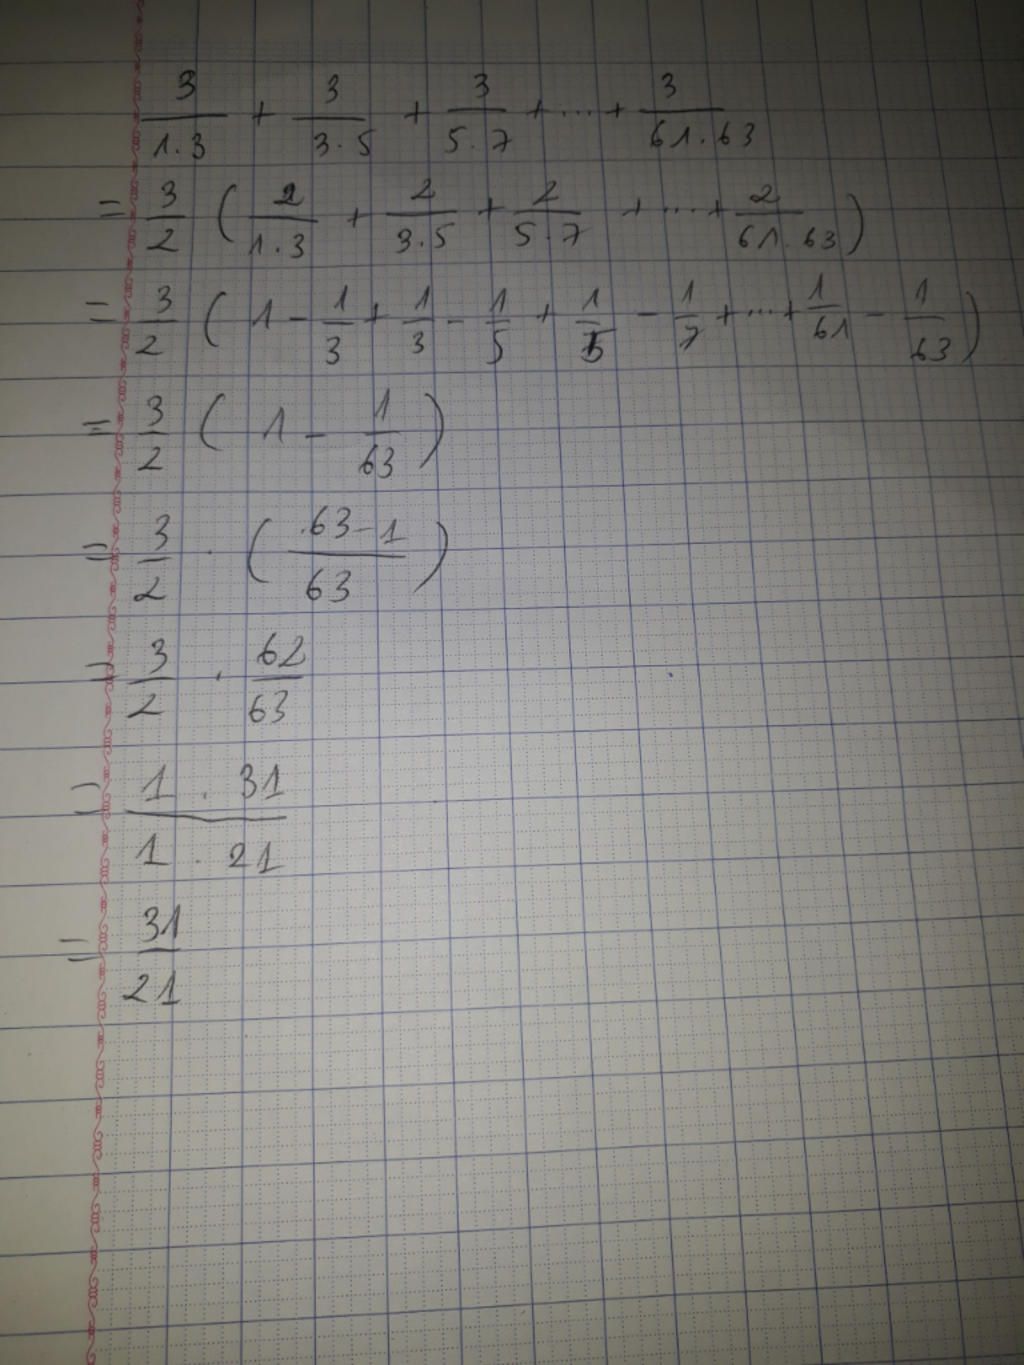 3/1.3 + 3/3.5 + 3/5.7 + ... + 3/61.63
= 3/2 ( 2/1.3 + 2/3.5 + 2/5.7 + ... + 2/61.63 )
= 3/2 ( 1 - 1/3 + 1/3 - 1/5 + 1/5 - 1/7 + ... + 1/61 - 1/63 )
= 3/2 ( 1 - 1/63 )
= 3/2 . ( 63-1/63 )
= 3/2 . 62/63
= 1 . 31/1 . 21
= 31/21